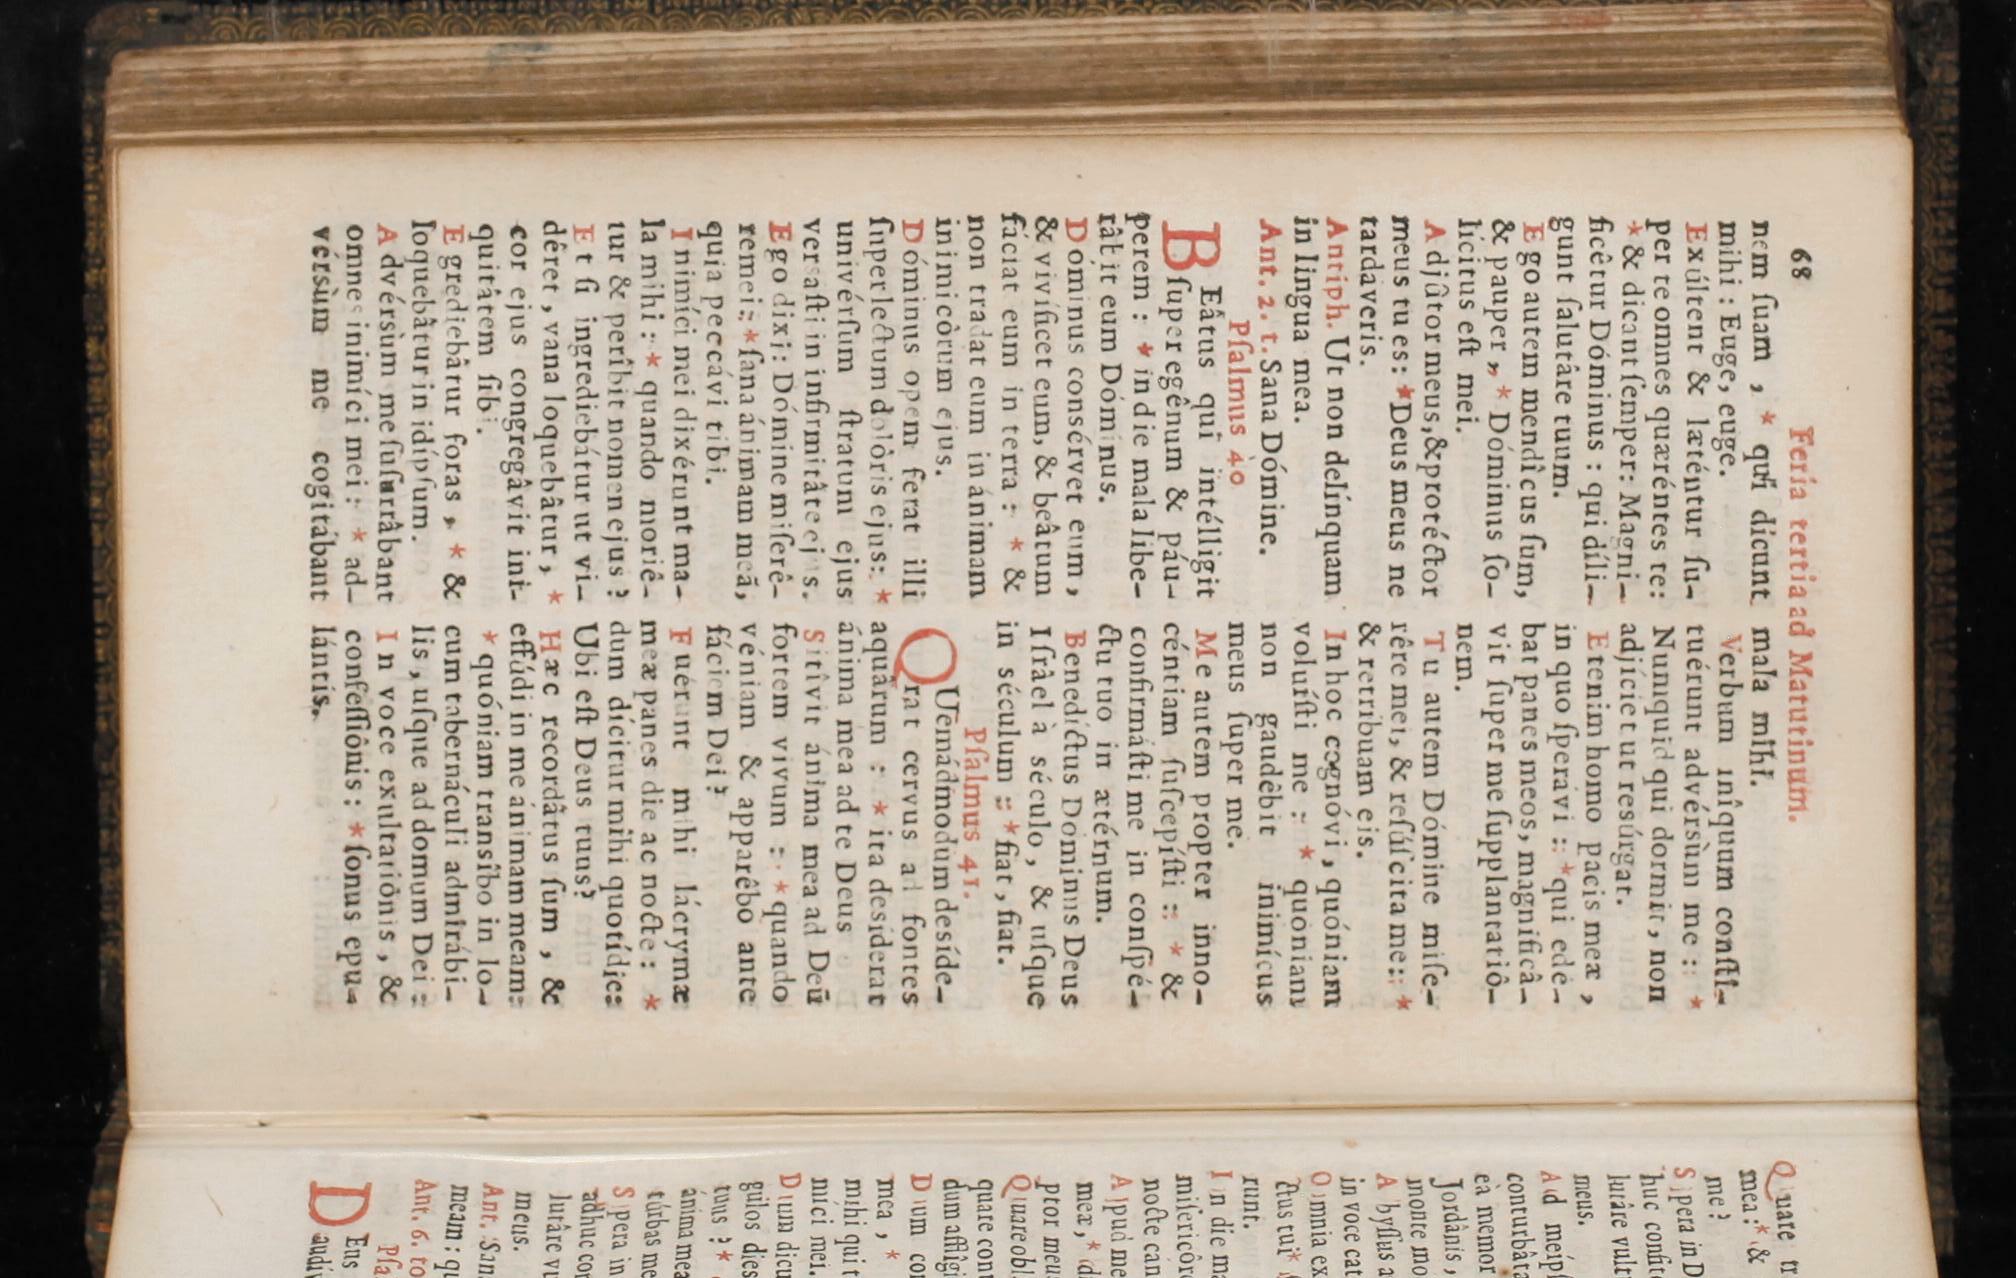 68
Feria tertia ad Matutinum.
nem ſuam , * qui dicunt
mihi : Euge, euge.
Exúltent & læténtur ſu-
per te omnes quæréntes te:
* & dicant ſemper: Magni-
ficêtur Dóminus : qui díli-
gunt ſalutâre tuum.
Ego autem mendîcus ſum,
& pauper, * Dóminus ſo-
lícitus eſt mei.
Adjûtor meus, & protéctor
meus tu es: * Deus meus ne
tardaveris.
Antiph. Ut non delínquam
in lingua mea.
Ant. 2. t. Sana Dómine.
Pſalmus 40
BEâtus quî intélligit
ſuper egênum & páu-
perem : * in die mala libe-
râbit eum Dóminus.
Dóminus consérvet eum ,
& vivíficet eum, & beâtum
fáciat eum in terra : * &
non tradat eum in ánimam
inimicôrum ejus.
Dóminus opem ferat illi
ſuper lectum dolôris ejus: *
univérſum ſtratum ejus
verſaſti in infirmitâte ejus.
Ego dixi : Dómine miſerê-
re mei : * ſana ánimam meã,
quia peccávi tibi.
Inimíci mei dixérunt ma-
la mihi : * quando moriê-
tur & períbit nomen ejus ?
Et ſi ingrediebátur ut vi-
dêret , vana loquebâtur , *
cor ejus congregâvit ini-
quitâtem ſibi.
Egrediebâtur foras , * &
loquebâtur in idípſum.
Advérsùm me ſuſurrâbant
omnes inimíci mei : * ad-
vérsùm me cogitábant
mala mihi.
Verbum iníquum conſti-
tuérunt advérsùm me : *
Nunquid qui dormit, non
adjíciet ut resúrgat.
Etenim homo pacis meæ ,
in quo ſperavi : * qui ede-
bat panes meos, magnificâ-
vit ſuper me ſupplantatiô-
nem.
Tu autem Dómine miſe-
rêre mei, & reſúſcita me: *
& retribuam eis.
In hoc cognóvi , quóniam
voluíſti me : * quoniam
non gaudêbit inimícus
meus ſuper me.
Me autem propter inno-
céntiam ſuſcepíſti : * &
confirmáſti me in conſpé-
ctu tuo in ætérnum.
Benedíctus Dominus Deus
Iſrâel à século , & uſque
in séculum : * fiat , fiat.
Pſalmus 41.
QUemádmodum desíde-
rat cervus ad fontes
aquârum : * ita desiderat
ánima mea ad te Deus
Sitîvit ánima mea ad Deũ
fortem vivum : * quando
véniam & apparêbo ante
fáciem Dei ?
Fuérunt mihi lácrymæ
meæ panes die ac nocte : *
dum dícitur mihi quotídie:
Ubi eſt Deus tuus?
Hæc recordâtus ſum , &
effúdi in me ánimam meam:
* quóniam transîbo in lo-
cum tabernáculi admirábi-
lis , uſque ad domum Dei :
In voce exultatiônis , &
confeſſiônis : * ſonus epu-
lántis.
Quare tr
mea? * &
me ?
Spera in D
huc confite
lutâre vult
meus.
Ad meípſ
conturbâta
ea memor
Jordânis ,
monte mo
Abyſſus a
in voce cat
Omnia ex
ctus tui *
runt.
In die ma
miſericôr
nocte can
Apud me
meæ, * di
ptor meus
Quare obl
quare cont
dum afflîgi
Dum con
mea , *
mihi qui t
míci mei.
Dum dicu
gulos dies
tuus ? *
ánima mea
túrbas me
Spera in
adhuc con
lutâre vu
meus.
Ant. San
meam : qu
Ant. 6. to
Pſa
DEus
audiv